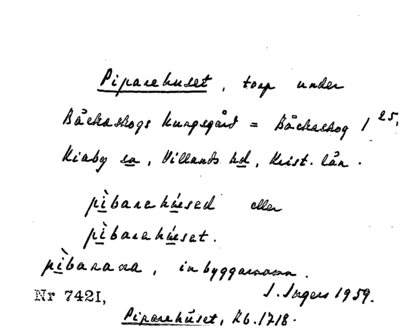 Piparehuset, torp under
Bäckaskogs kungsgård = Bäckaskog 1 25,
Kiaby sn, Villands hd, Krist. län.
pìbarehúsed eller
pìbarehúset.
pìbarana, inbyggarnamn.
Nr 7421, I. Ingers 1959.
Piparehuset, Kb. 1718.